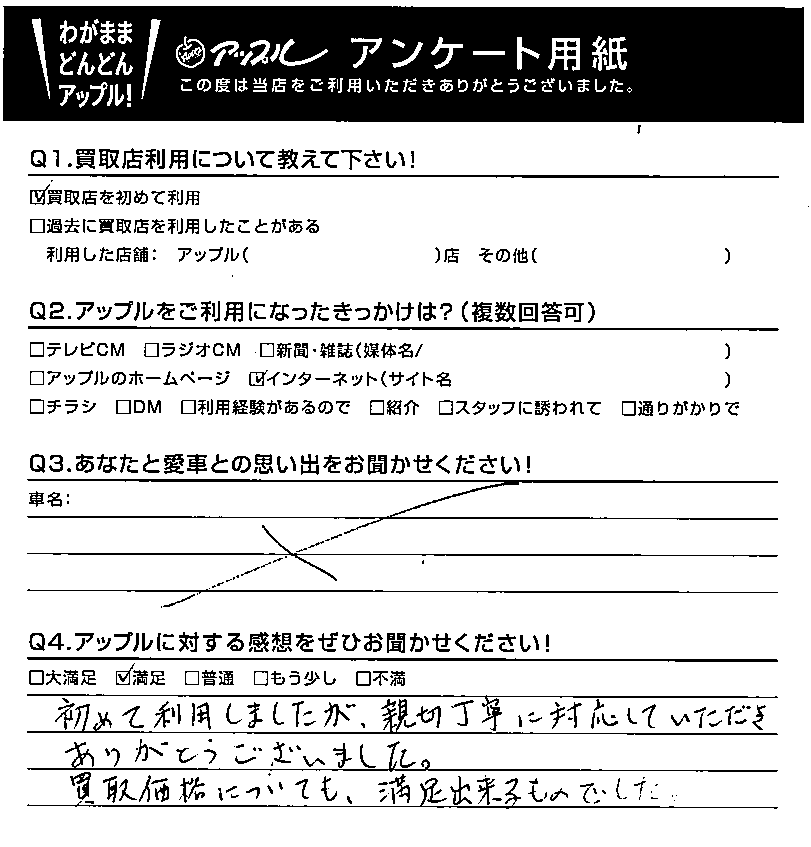 わがまま
どんどん
アップル!
アップル アンケート用紙
この度は当店をご利用いただきありがとうございました。
Q1.買取店利用について教えて下さい!
☑買取店を初めて利用
□過去に買取店を利用したことがある
利用した店舗: アップル( )店 その他( )
Q2.アップルをご利用になったきっかけは?(複数回答可)
□テレビCM □ラジオCM □新聞・雑誌(媒体名/ )
□アップルのホームページ ☑インターネット(サイト名 )
□チラシ □DM □利用経験があるので □紹介 □スタッフに誘われて □通りがかりで
Q3.あなたと愛車との思い出をお聞かせください!
車名:
Q4.アップルに対する感想をぜひお聞かせください!
□大満足 ☑満足 □普通 □もう少し □不満
初めて利用しましたが、親切丁寧に対応していただき
ありがとうございました。
買取価格についても、満足出来るものでした。